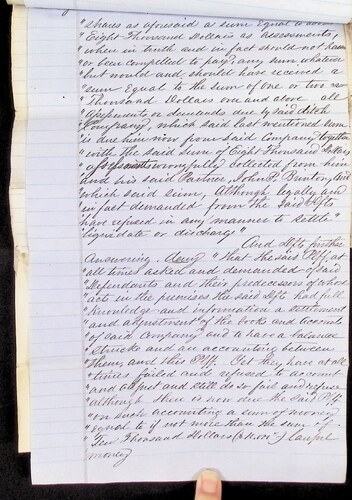 "shares as aforesaid a sum equal to some
"Eight Thousand Dollars as assessments,
"when in truth and in fact should not have
"or been compelled to pay, any sum whatever
"but would and should have received a
"sum equal to the sum of one or two
"Thousand Dollars over and above all
"assessments or demands due by said ditch
"Company, which said last mentioned sum
"is due him now from said Company together
"with the said sum of Eight Thousand Dollars
wrongfully collected from him
"and his said Partner, John P. Brinton, and
"which said sum, Although legally and
"in fact demanded from the said Defts
"have refused in any manner to settle
"liquidate or discharge"
And Defts further
Answering, deny "That the said Plff, at
"all times asked and demanded of said
"Defendants and their predecessors of whose
"acts in the premises the said Defts had full
"Knowledge and information a settlement
"and adjustment of the books and accounts
"of said Company and to have a balance
"struck and an accounting between
"them, and this Plff. Yet they have at all
"times failed and refused to account
"and adjust and still do so fail and refuse
"although there is now due the said Plff
"on such accounting a sum of money
"equal to if not more than the sum of
"Ten Thousand Dollars lawful
"money